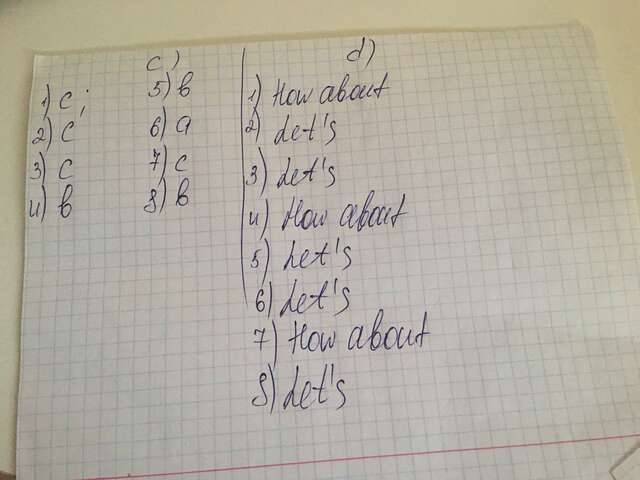 c)
1) c;
2) c
3) c
4) b
5) b
6) a
7) c
8) b
d)
1) How about
2) Let's
3) Let's
4) How about
5) Let's
6) Let's
7) How about
8) Let's